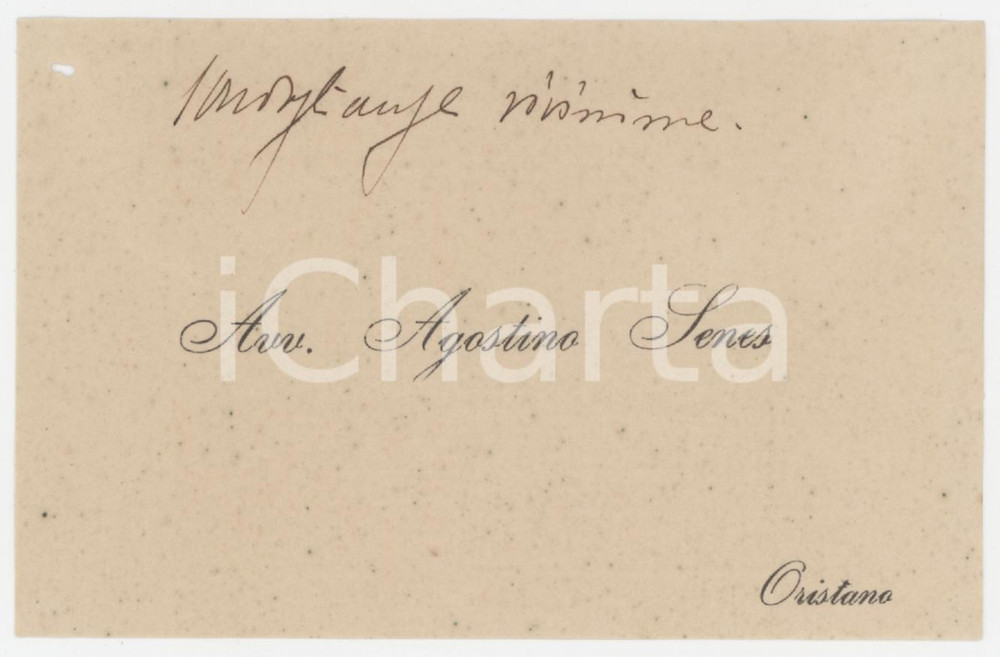 Condoglianze vivissime.
iCharta
Avv. Agostino Senes
Oristano